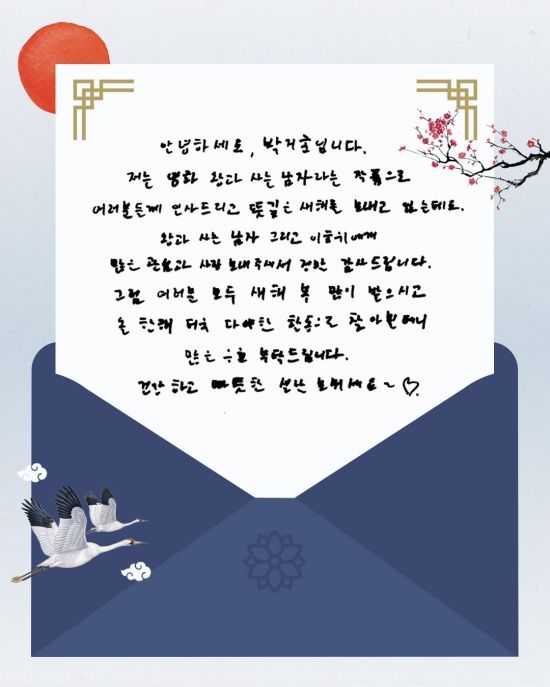 안녕하세요, 박지훈입니다.
저는 영화 왕과 사는 남자라는 작품으로
여러분들께 인사드리고 뜻깊은 새해를 보내고 있는데요.
왕과 사는 남자 그리고 이홍위에게
많은 관심과 사랑 보내주셔서 정말 감사드립니다.
그럼 여러분 모두 새해 복 많이 받으시고
올 한해 더욱 다양한 활동으로 찾아뵐테니
많은 응원 부탁드립니다.
건강하고 따뜻한 설날 보내세요~ ♡.